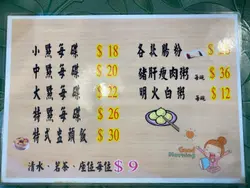 小點每碟 $18
中點每碟 $20
大點每碟 $22
特點每碟 $26
特式盅頭飯 $30
各款腸粉 $
豬肝瘦肉粥 每碗 $36
明火白粥 每碗 $12
Good Morning
清水、茗茶、座位每位 $9